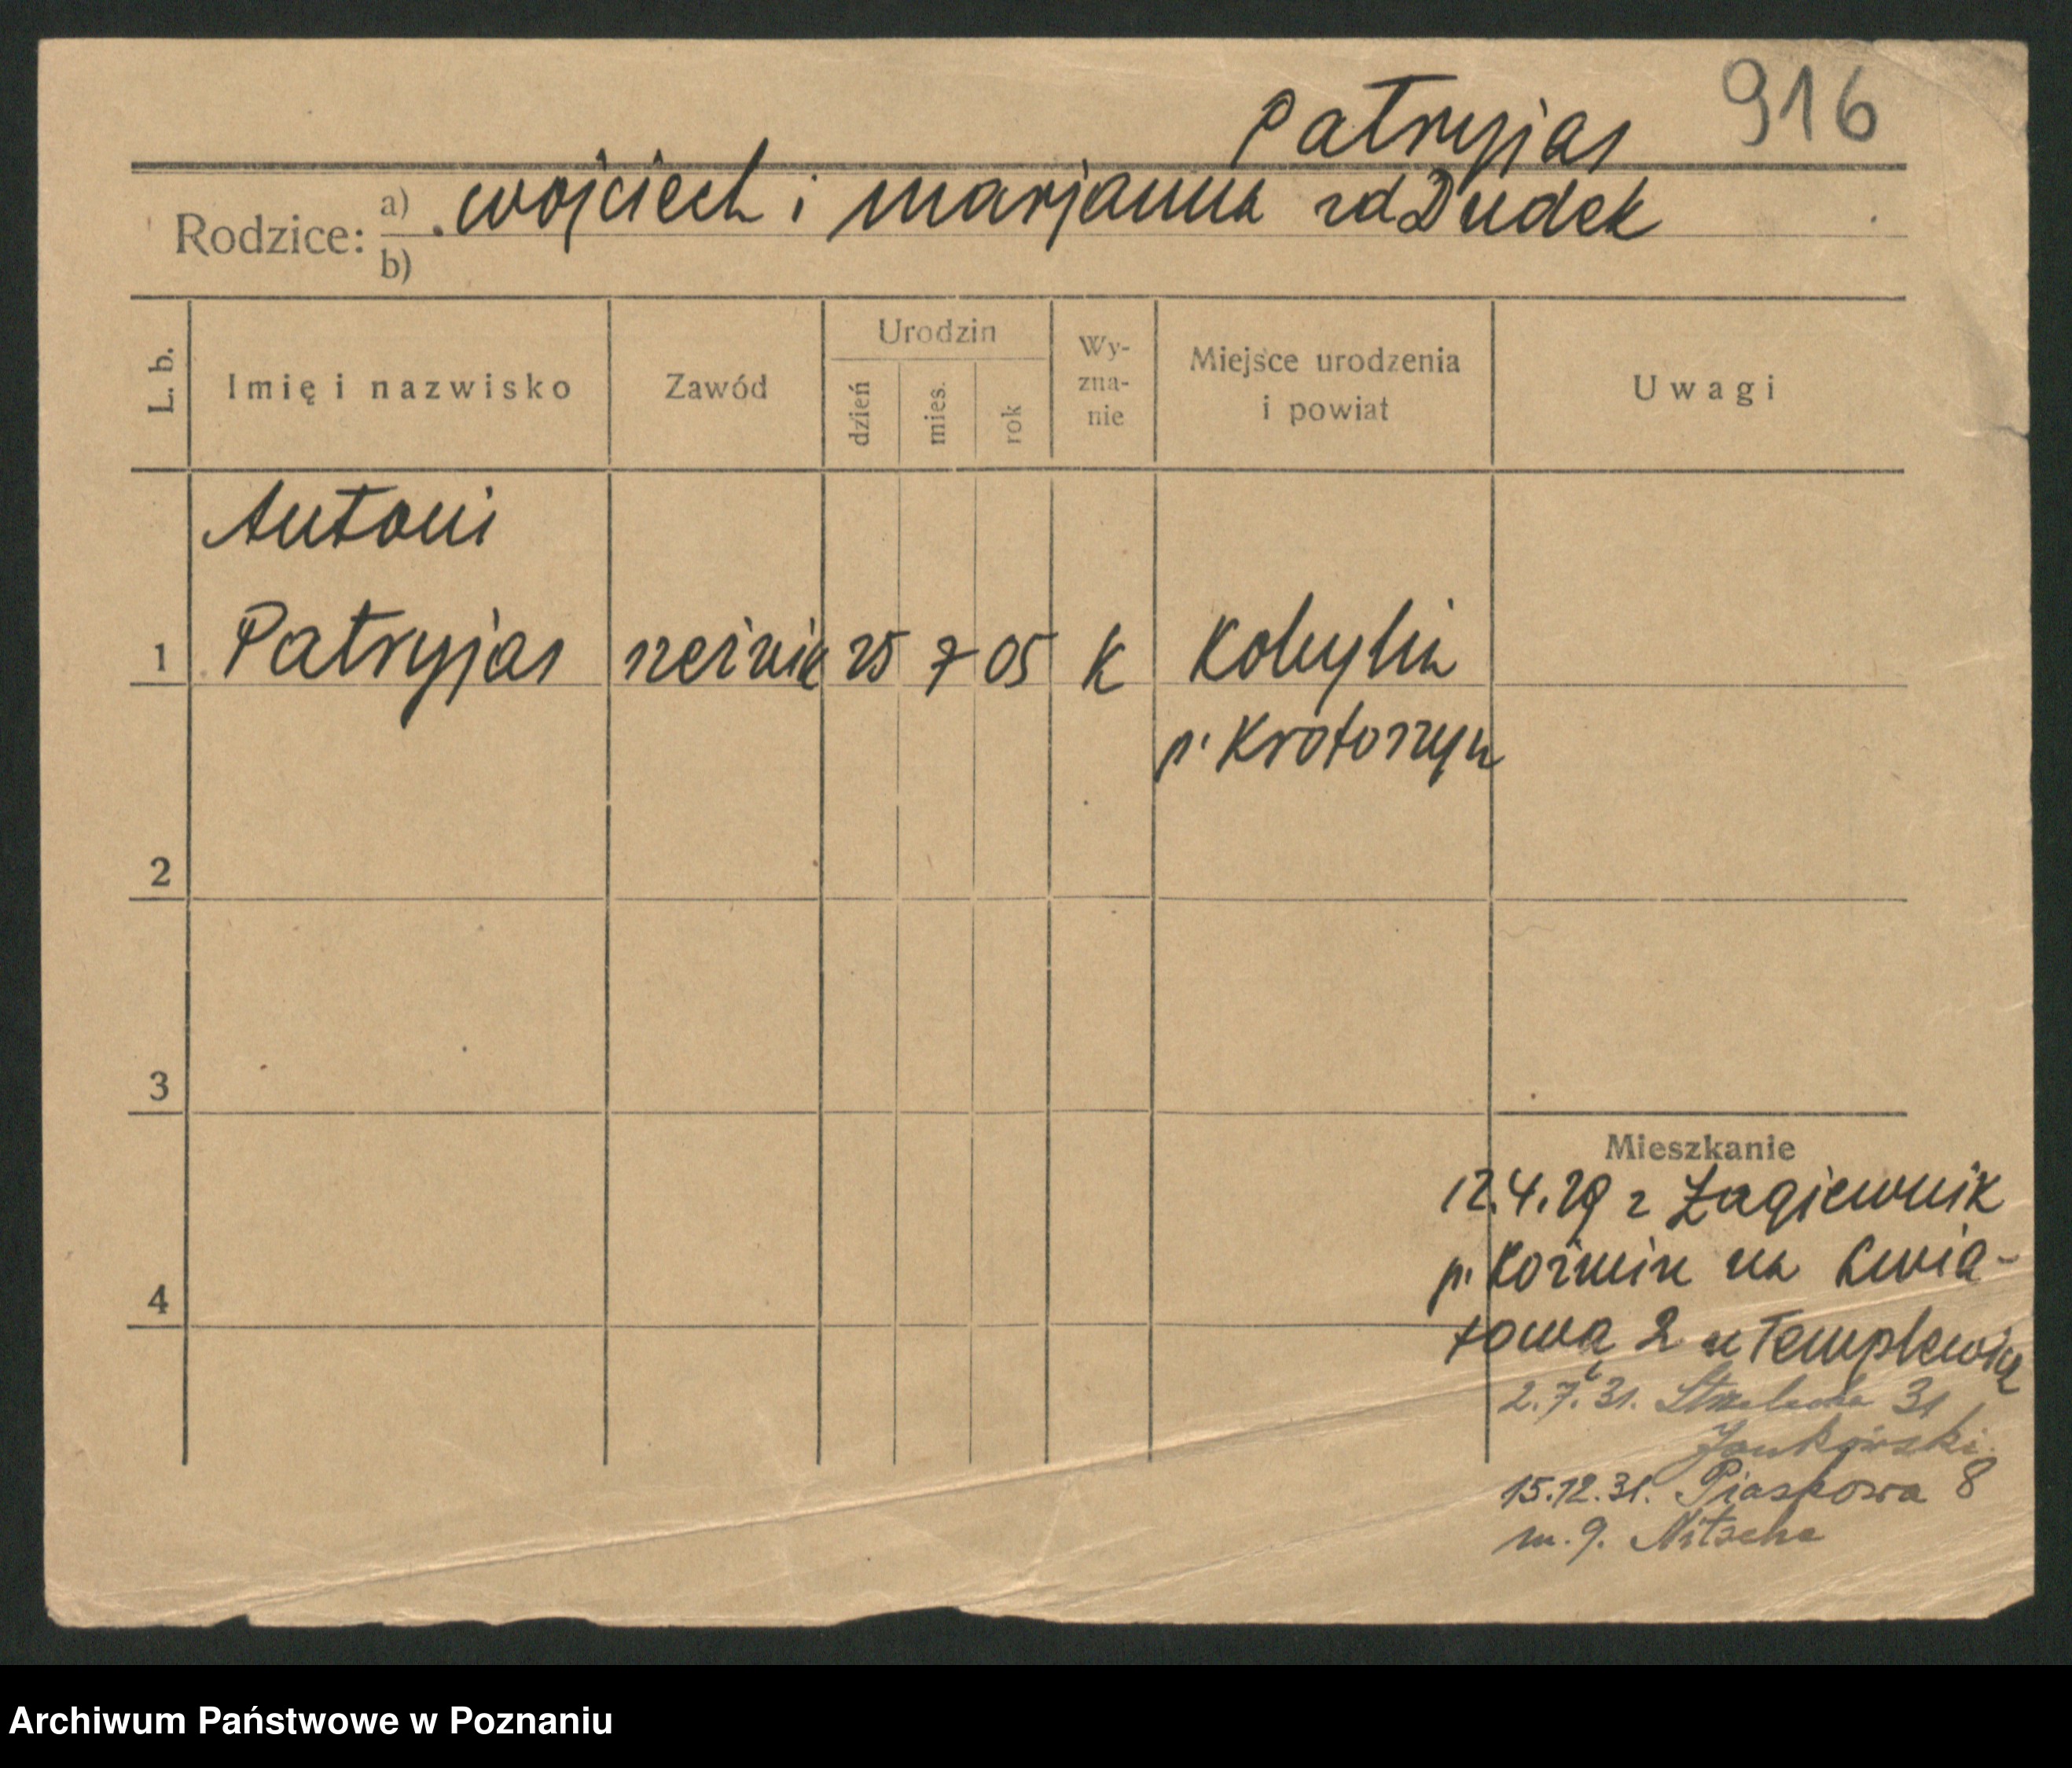 916
Patryjas
Rodzice: a) Wojciech i Marjanna zd Dudek
b)
L. b. Imię i nazwisko Zawód Urodzin dzień mies. rok Wy-zna-nie Miejsce urodzenia i powiat Uwagi
Antoni
1 Patryjas rzeźnik 25 7 05 K Kobylin
p. Krotoszyn
2
3
Mieszkanie
12.4.29 z Łagiewnik
p. Koźmin na Kwia-
4
tową 2 u Templewicz
2.7.31. Strzelecka 31
Jankowski
15.12.31. Piaskowa 8
m. 9. Nitsche
Archiwum Państwowe w Poznaniu